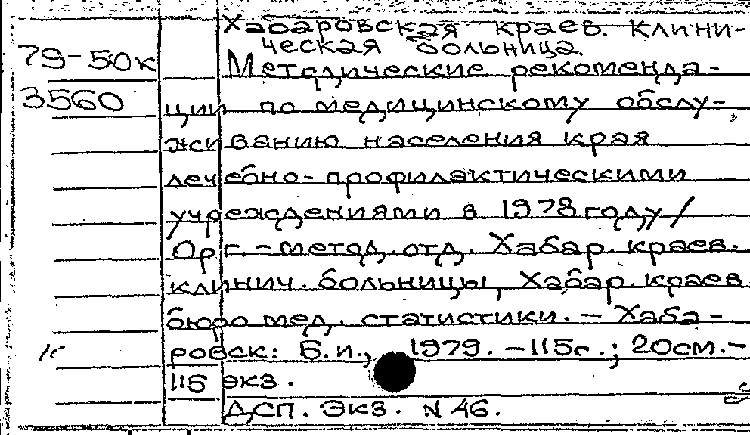 Хабаровская краев. клини-
ческая больница.
79-50к
Методические рекоменда-
3560
ции по медицинскому обслу-
живанию населения края
лечебно-профилактическими
учреждениями в 1978 году /
Орг.-метод. отд. Хабар. краев.
клинич. больницы, Хабар. краев
бюро мед. статистики. - Хаба-
ровск: Б.и., 1979. - 115с.; 20см.-
115 экз.
ДСП. Экз. N 46.